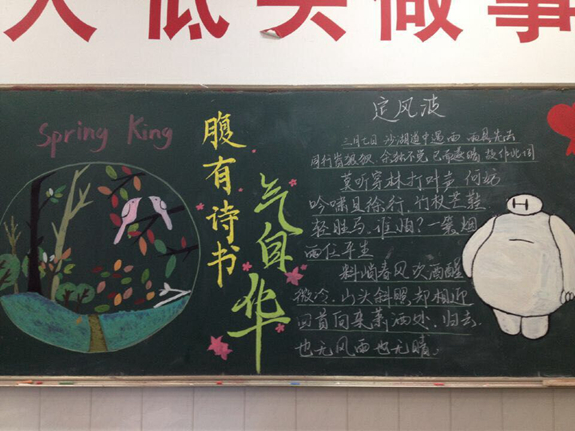 人 低头做事
Spring King
腹有诗书
气自华
定风波
三月七日 沙湖道中遇雨 雨具先去
同行皆狼狈 余独不觉 已而遂晴 故作此词
莫听穿林打叶声 何妨
吟啸且徐行. 竹杖芒鞋
轻胜马. 谁怕? 一蓑烟
雨任平生
料峭春风吹酒醒
微冷. 山头斜照却相迎
回首向来萧洒处. 归去.
也无风雨也无晴.